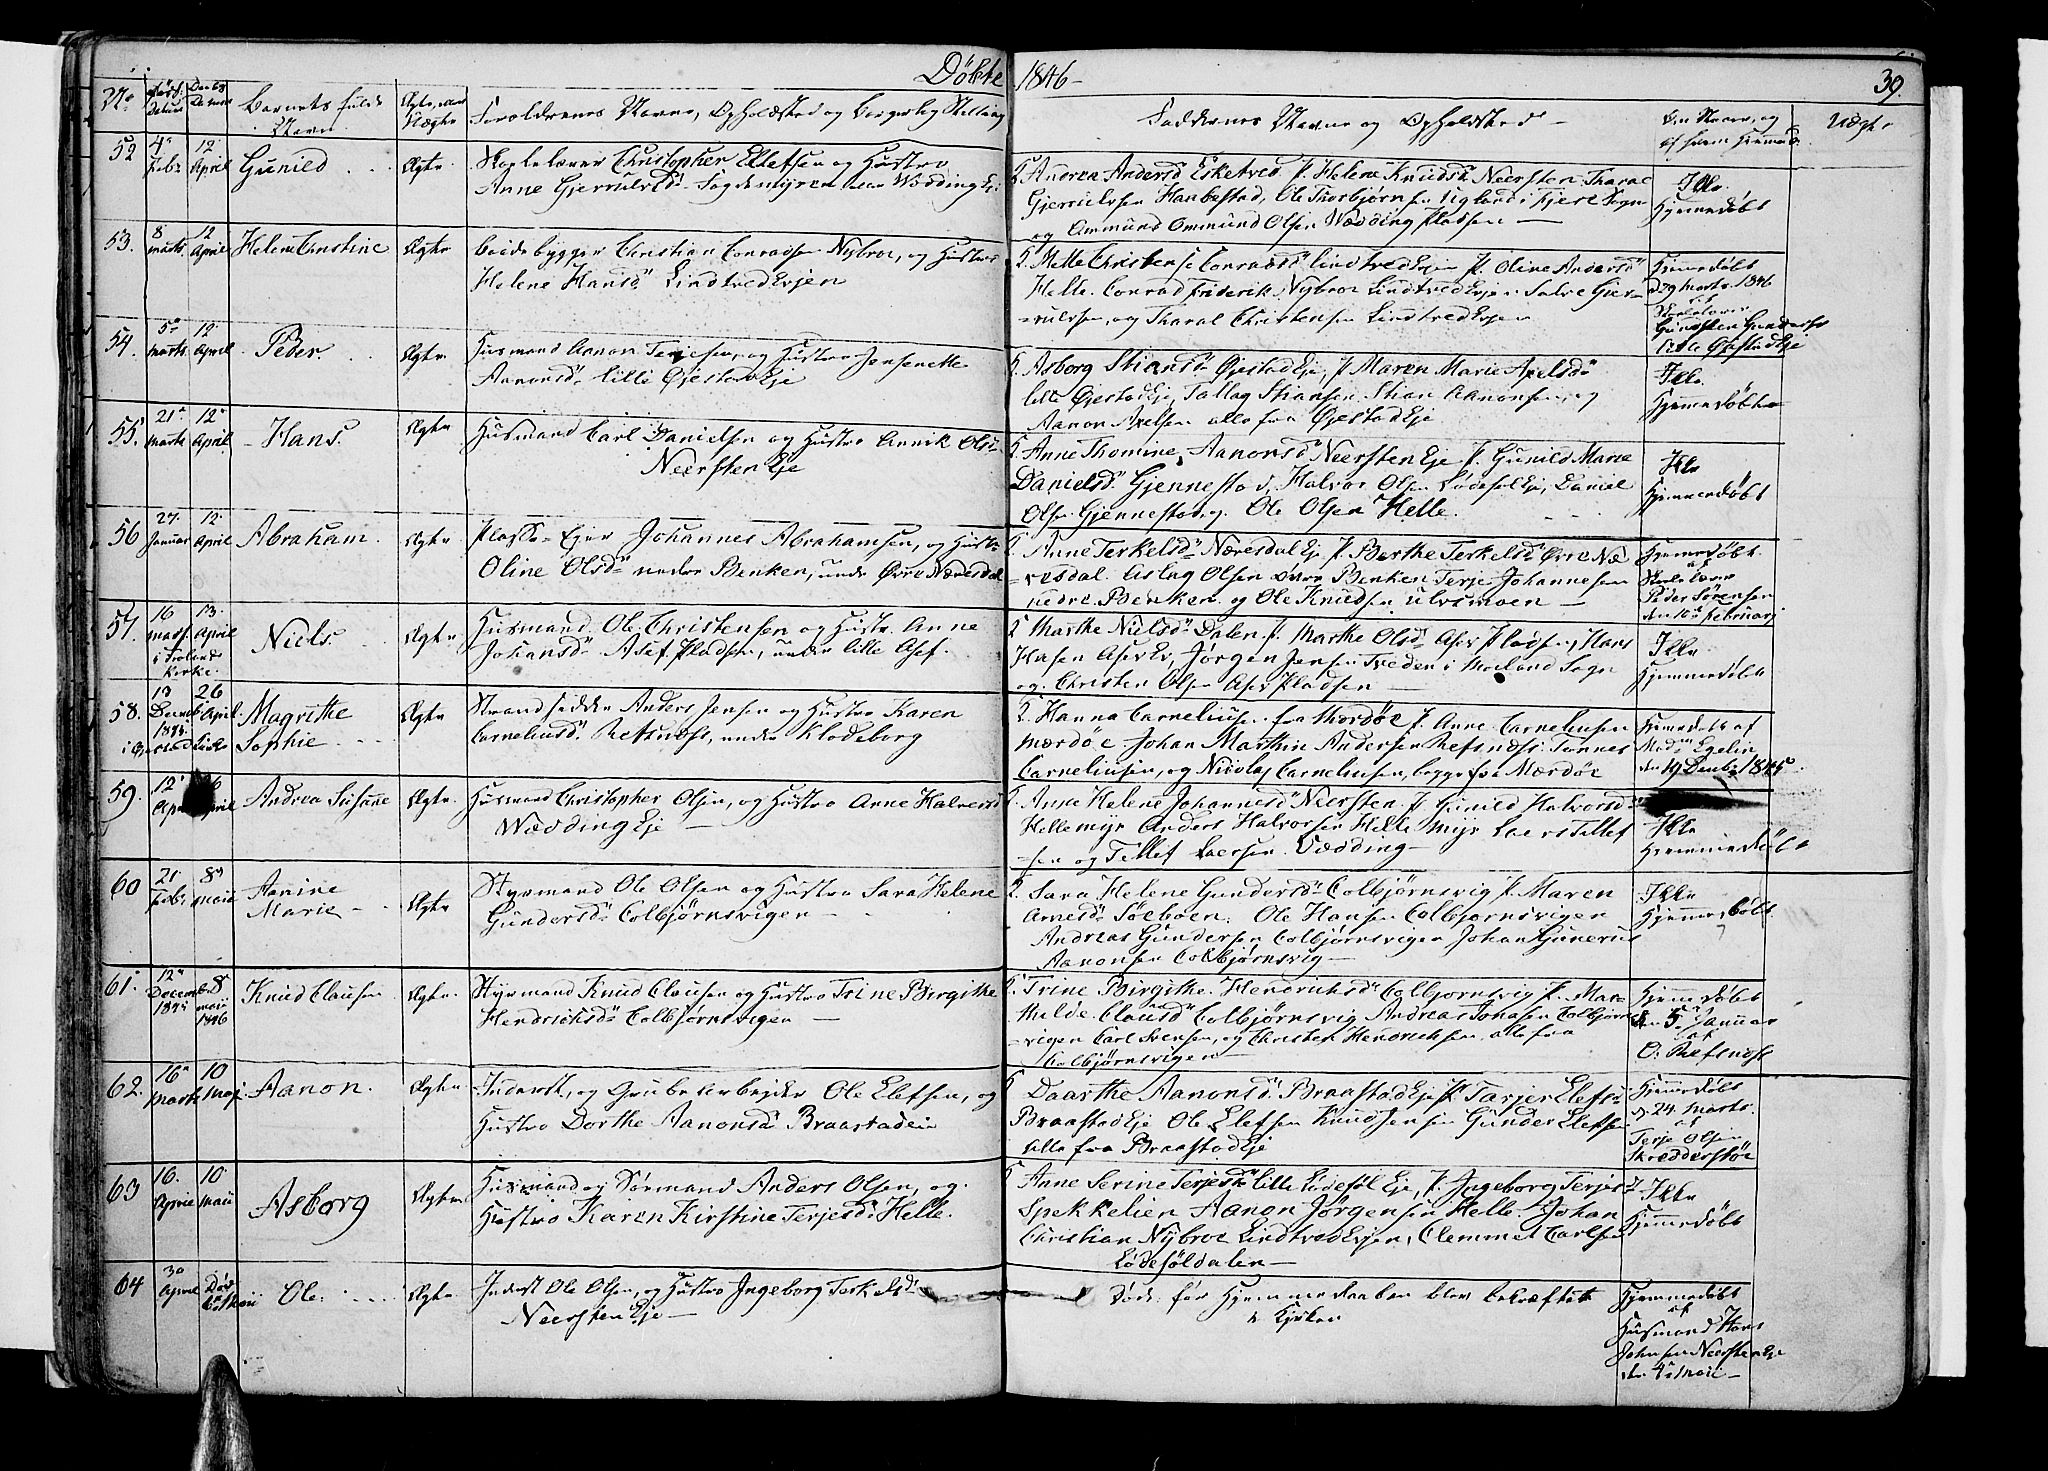 Døbte 1846 39.
No Barnets fulde Navn Forældrenes Navne, Opholdssted og Borgerlig Stilling Faddernes Navne og Opholdsted
52 4de Febr 12 April Gunild Ægte Skolelærer Christopher Ellefsen og Hustro
Anne Gjerruldsd
Andrea Andersd P. Helene Knudsd Neersten
Ole Thorbjørnsen
og Ommund Olsen Wædding Pladsen
Ikke
Hjemmedøbt
53. 8 Marts 12 April Helene Christine Ægte Christian Conradsen Nybroe, og Hustro
Helene Hansd Lindtved Ejen
Mette Christense Conradsd Lindtved Ejen P. Oline Andersd
Helle. Conrad Friderik Nybroe Lindtved Ejen Salve Gjer-
rulsen, og Tharal Christensen Lindtved Ejen
Hjemmedøbt
d 29 Marts 1846
af
Skolelærer
Gundersen
54. 5te Marts 12 April Peder Ægte Husmand Aanon Terjesen, og Hustro Jensenette
Aanonsd lille Øjestad Eje
Asborg Stiansd Øjestad Eje, P. Maren Marie Axelsd
lille Øjestad Eje, Tallag Stiansen, Stian Aanonsen, og
Aanon Axelsen alle fra Øjestad Eje
Ikke
Hjemmedøbt
55. 21de Marts 12te April Hans. Ægte Husmand Carl Danielsen og Hustro Annik Olsd
Neersten Eje
Anne Thomine Aanonsd Neersten Eje P. Gunild Marie
Danielsd Gjennestad, Halvor Olsen Lødesøl Eje, Daniel
Olsen Gjennestad og Ole Olsen Helle.
Ikke
Hjemmedøbt
56 27. Januar 12. April Abraham. Ægte Plads-Ejer Johannes Abrahamsen, og Hustro
Oline Olsd nedre Benken, under Øvre Næresdal
Anne Terkelsd Næresdal Eje P. Berthe Terkelsd Øvre Næ
resdal. Aslag Olsen øvre Benken Terje Johannesen
nedre Benken og Ole Knudsen Ulvsmoen
Hjemmedøbt
af
Skolelærer
Peder Sørensen
den 10de Februari
57. 16 Marts 13. April i Froland Kirke. Niels. Ægte Husmand Ole Christensen og Hustro Anne
Johansd Asef Pladsen, under lille Asef.
Marthe Nielsd Dalen P. Marthe Olsd Asef Pladsen, Hans
Jørgen Jensen Tveden i Moland Sogn
og Christen Olsen Asef Pladsen
Ikke
Hjemmedøbt
58. 13 Decembr 1845. 26 April Magrethe
Sophie Ægte Strandsidder Anders Jensen og Hustro Karen
Corneliusd Refsnæs, under Klodeborg
Hanna Corneliusen fra Mærdøe P. Anne Corneliusen
Mærdøe Johan Marthin Andersen Refsnæs Tønnes
Corneliusen, og Nicolaj Corneliusen, begge fra Mærdøe
Hjemmedøbt af
den 19 Decbr 1845
59. 12 April 26 April Andrea Susanne Ægte. Husmand Christopher Olsen, og Hustro Anne Halvorsd
Wædding Eje
Anne Helene Johannesd Neersten P. Gunild Halvorsd
Hellemyr Anders Halvorsen Helle Myr Laers Tellef
sen og Tellef Laersen Vædding
Ikke
Hjemmedøbt
60 21. Febr 8de Maii Aanine
Marie Ægte Styrmand Ole Olsen og Hustro Sara Helene
Gundersd Colbjørnsvigen
Sara Helene Gundersd Colbjørnsvig P. Maren
Arnesd Søeboen. Ole Hansen Colbjørnsvigen
Andreas Gundersen Colbjørnsvigen Johan Gunerius
Aanonsen Colbjørnsvig
Ikke
Hjemmedøbt
61. 12te December 1845 8de Maii 1846 Knud Clausen Ægte. Styrmand Knud Clausen og Hustro Trine Birgithe
Hendrichsd Colbjørnsvigen
Trine Birgithe Hendrichsd Colbjørnsvig P. Ma-
thilde Clausd Colbjørnsvig Andreas Johasen Colbjørns
vigen Carl Svensen, og Christen Hendrichsen alle fra
Colbjørnsvigen
Hjemmedøbt
den 5te Januar
af
O. Refsnæs
62. 16de Marts 10 Maj Aanon. Ægte Inderst, og Grubearbejder Ole Elefsen, og
Hustro Dorthe Aanonsd Braastadeie
Daarthe Aanonsd Braastad Eje P. Tarjer Elefsd
Braastad Eje Ole Elefsen Knudsen Gunder Elefsen
alle fra Braastad Eje
Hjemmedøbt
d. 24 Marts
af
Terje Olsen
Skredderstøe
63 16. April 10. Maii Asborg Ægte Husmand og Sømand Anders Olsen, og
Hustro Karen Kirstine Terjesd Helle.
Anne Serine Terjesd lille Lødesøl Eje, P. Ingeborg Terjesd
Spekkelien Aanon Jørgensen Helle. Johan
Christian Nybroe Lindtved Ejen, Clemmet Carlsen
Lødesøldalen
Ikke
Hjemmedøbt
64 30 April Død Ole Ægte Inderst Ole Olsen, og Hustro Ingeborg Terkelsd
Neersten Eje
Døde før Hjemmedaaben blev bekræftet
i Kirken
Hjemmedøbt
af
Husmand Hans
Johnsen Neersten Eje
den 4de Maii